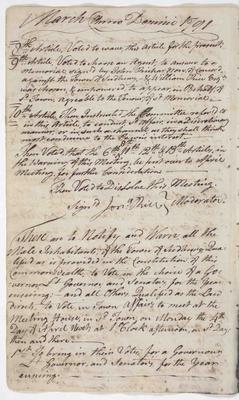 March Anno Domini 1791
8th Article, Voted to wave this article for the present.
9th Article, Voted to chose an Agent, to answer to a
Memorial, signed by John
against the Town of & William Esqr
was chosen, & empowered to appear, in Behalf of
sd Town agreeable to the of sd Memorial.
10th Article, Then Instructed the Committee refer'd to
in this Article, to conduct in a Discretionary
manner, or in such a channel as they shall think
most conducive to the Publick interest.
Then Voted that the 6th 11th 12th & 13th Articles, in
the Warning of this Meeting, be put over to
Meeting, for further Consideration.
Then Voted to Dissolve this Meeting.
Sign'd Moderator.
These are to Notify and Warn, all the
Male Inhabitants, of the Town of Quali-
fied as is provided in the Constitution of this
Commonwealth, to Vote, in the choice of a Go-
vernor, Lt Governor, and Senators, for the Year
ensuing: and all others Qualified as the Law
directs, to Vote in Town Affairs, to meet at the
Meeting House, in sd Town, on Monday the 4th
Day of April Next, at 1 Clock afternoon, on sd Day
then and there:
1st To bring in their Votes, for a Governour
Lt Governor, and Senators, for the Year
ensuing.